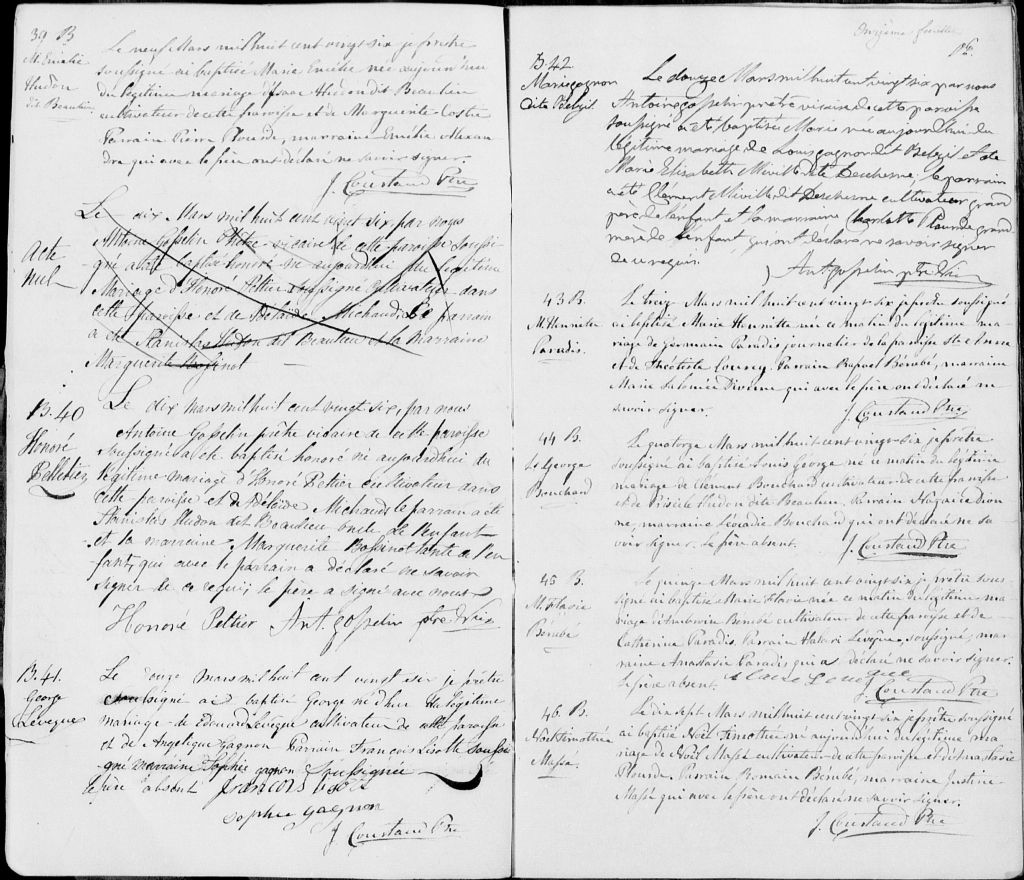 39 B
M. Emélie
Hudon
dit Beaulieu
Le neuf Mars mil huit cent vingt six je prêtre
soussigné ai baptisé Marie Emélie née aujourd'hui
du légitime mariage d'Isaac Hudon dit Beaulieu
cultivateur de cette paroisse et de Marguerite Costin
Parrain Pierre Plourde, marraine Emélie Alexan
dre qui avec le père ont déclaré ne savoir signer.
J. Coustaud Ptre
acte
nul
Le dix Mars mil huit cent vingt six par nous
Antoine Gosselin Prêtre vicaire de cette paroisse soussi-
gné a été baptisé honoré né aujourdhui du légitime
Mariage d'Honoré Peltier soussigné cultivateur dans
cette paroisse et de Adelaïde Michaud Le parrain
a été Stanislas Hudon dit Beaulieu et la marraine
Marguerite Bossinot
B. 40
Honoré
Pelletier
Le dix mars mil huit cent vingt six, par nous
Antoine Gosselin prêtre vicaire de cette paroisse
soussigné a été baptisé honoré né aujourdhui du
légitime mariage d'Honoré Peltier cultivateur dans
cette paroisse et de Adelaïde Michaud le parrain a été
Stanislas Hudon dit Beaulieu oncle de l'enfant
et la marraine Marguerite Bossinot tante de l'en
fant, qui avec le parrain a déclaré ne savoir
signer de ce requis; le père a signé avec nous
Honoré Peltier Ant. Gosselin ptre Vic
B. 41.
George
Leveque
Le onze mars mil huit cent vingt six je prêtre
soussigné ai baptisé George né d'hier du légitime
mariage de Edouard Levêque cultivateur de cette paroisse
et de Angelique Gagnon Parrain Francois Lisotte soussi
gné marraine Sophie gagnon soussignée
le père absent francois lisotte
sophie gagnon
J. Coustaud Ptre
Onzième feuille
B. 42
Marie gagnon
dite Belzil
Le douze Mars mil huit cent vingt six par nous
Antoine gosselin prêtre vicaire de cette paroisse
soussigné a été baptisée Marie née aujourd'hui du
légitime mariage de Louis gagnon dit Belzil et de
Marie Elisabeth Miville dite Dechesne, le parrain
a été Clément Miville dit Dechesne cultivateur grand
père de l'enfant et la marraine Charlotte Plourde grand
mère de l'enfant, qui ont déclaré ne savoir signer
de ce requis.
Ant. gosselin ptre Vic
43 B.
M. Henriette
Paradis.
Le treize Mars mil huit cent vingt six je prêtre soussigné
ai baptisé Marie Henriette née ce matin du légitime ma-
riage de germain Paradis journalier de la paroisse Ste Anne
et de Théotiste Courcy. Parrain Raphael Bérubé, marraine
Marie Salomée Dionne qui avec le père ont déclaré ne
savoir signer.
J. Coustaud Ptre
44 B.
Ls George
Bouchard
Le quatorze Mars mil huit cent vingt six je prêtre
soussigné ai baptisé Louis George né ce matin du légitime
mariage de Clément Bouchard cultivateur de cette paroisse
et de Priscile Hudon dite Beaulieu. Parrain Nazaire Dion
ne, marraine Léocadie Bouchard qui ont déclaré ne sa
voir signer. Le père absent.
J. Coustaud Ptre
45 B.
M. Flavie
Bérubé
Le quinze Mars mil huit cent vingt six je prêtre sous-
signé ai baptisé Marie Flavie née ce matin du légitime ma-
riage d'Ambroise Berubé cultivateur de cette paroisse et de
Catherine Paradis. Parrain Lévêque, soussigné, mar
raine Anastasie Paradis qui a déclaré ne savoir signer.
Le père absent.
J. Coustaud Ptre
46 B.
Noël Timothée
Massé.
Le dix sept Mars mil huit cent vingt six je prêtre soussigné
ai baptisé Noël Timothée né aujourd'hui du légitime ma
riage de Noël Massé cultivateur de cette paroisse et d'Anastasie
Plourde. Parrain Romain Berubé, marraine Justine
Massé qui avec le père ont déclaré ne savoir signer.
J. Coustaud Ptre